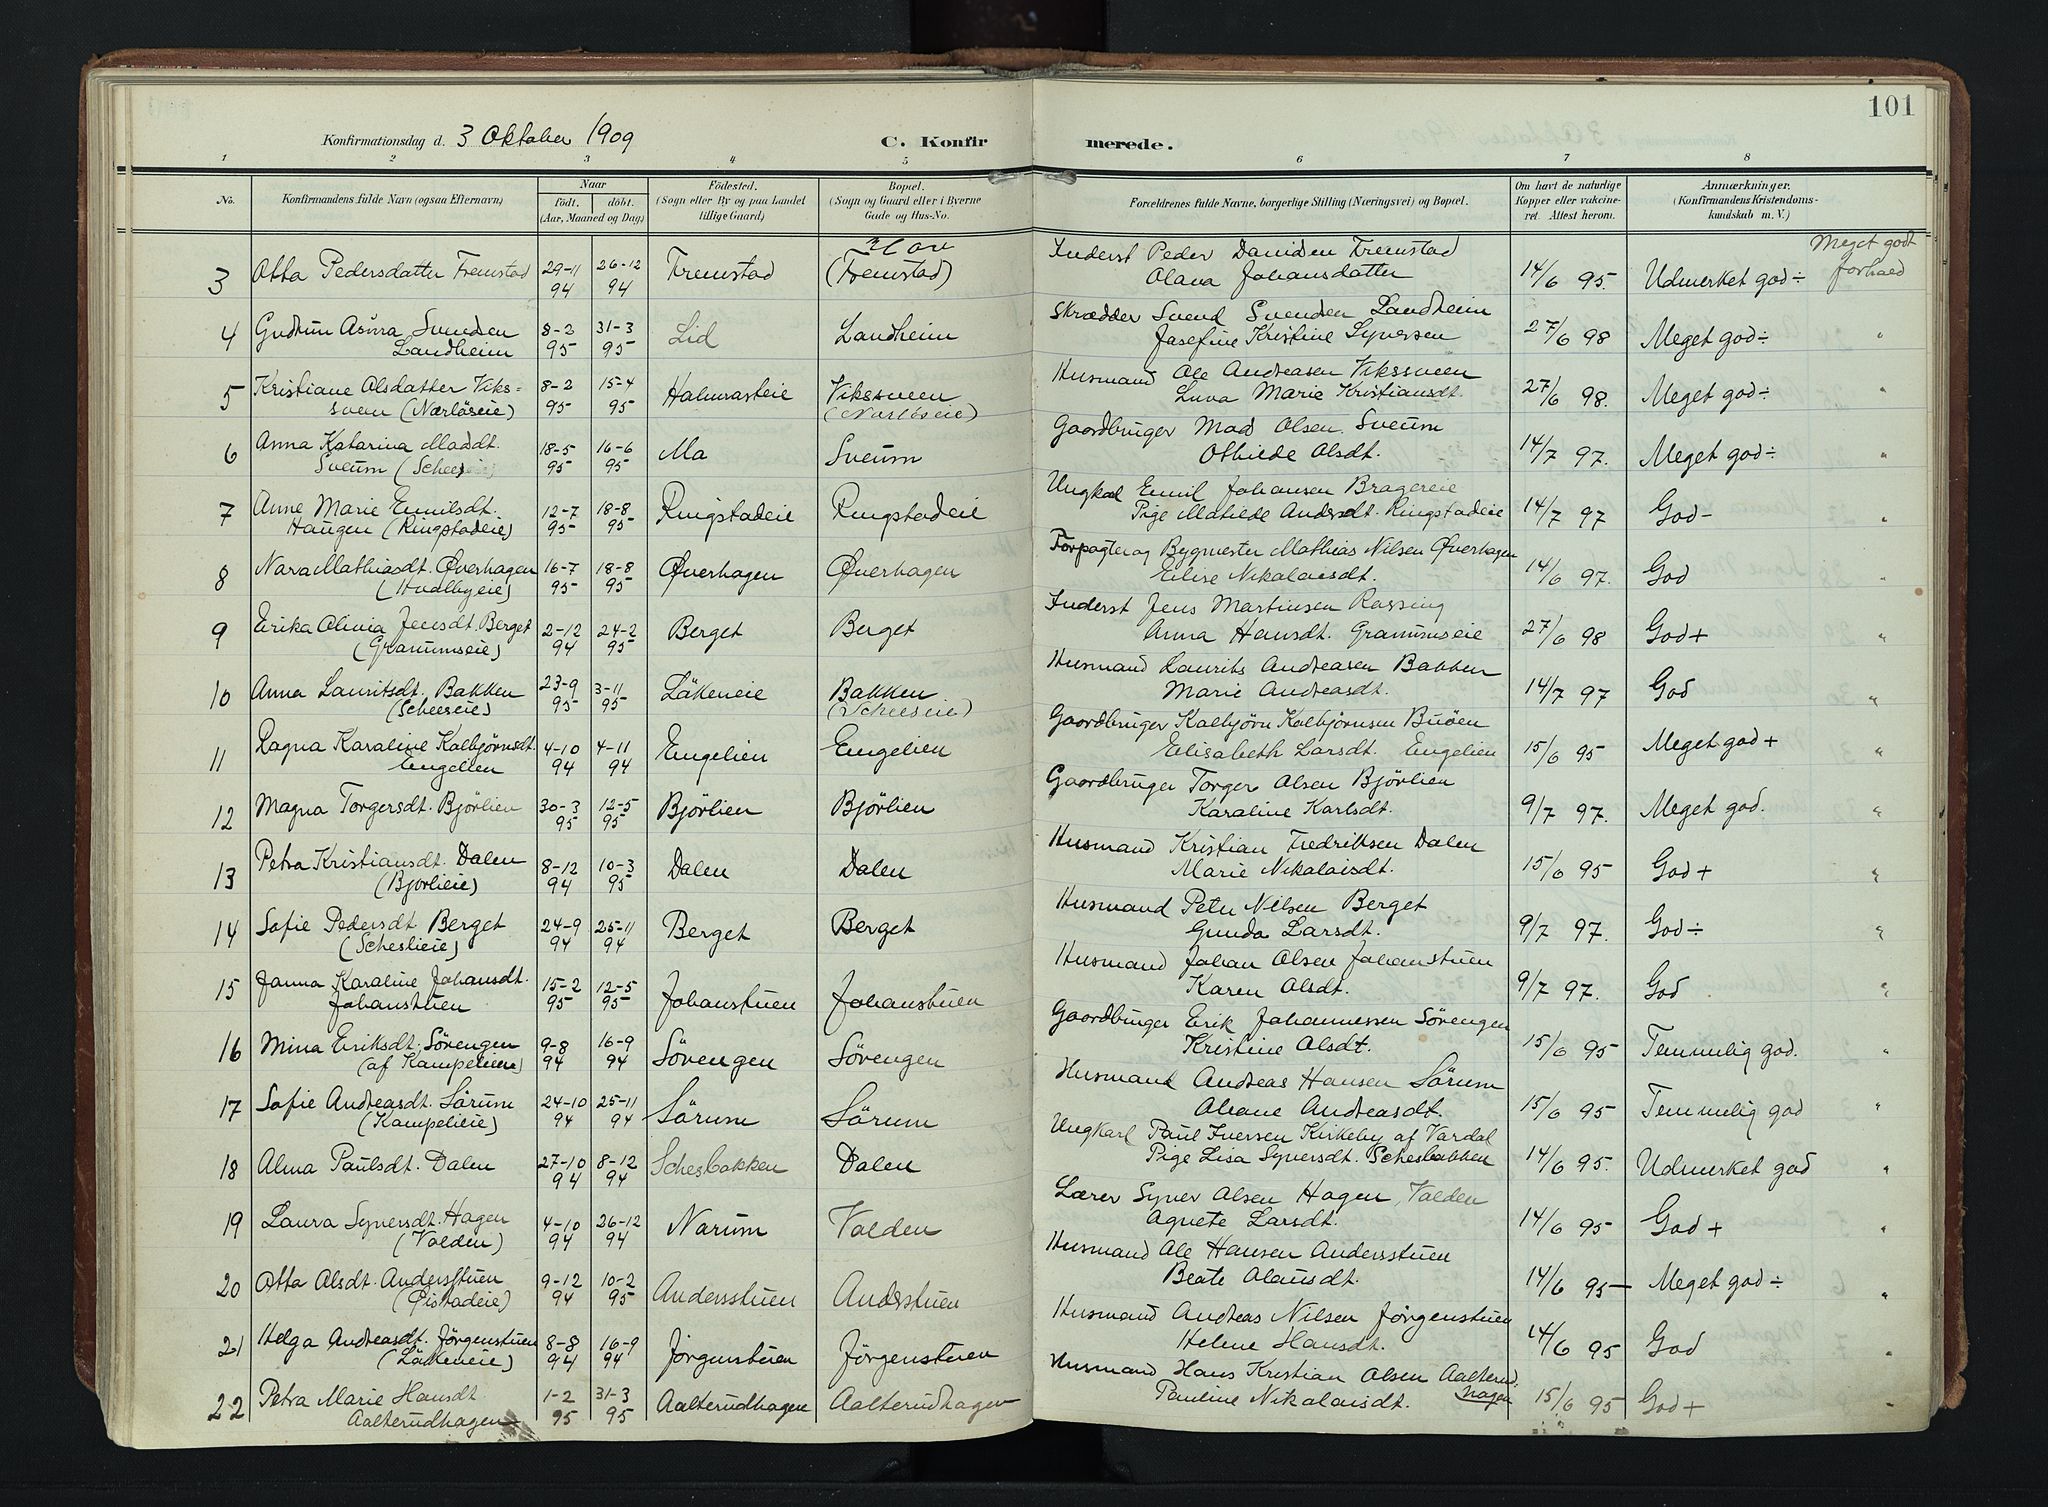 101
Konfirmationsdag d. 3 Oktober 1909
C. Konfirmerede.
1 2 3 4 5 6 7 8
No. Konfirmandens fulde Navn (ogsaa Efternavn) Naar født. døbt. (Aar, Maaned og Dag) Fødested. (Sogn eller By og paa Landet tillige Gaard) Bopæl. (Sogn og Gaard eller i Byerne Gade og Hus-No. Forældrenes fulde Navne, borgerlige Stilling (Næringsvei) og Bopæl. Om havt de naturlige Kopper eller vaccineret. Attest herom. Anmærkninger. (Konfirmandens Kristendomskundskab m. V.)
3 Otta Pedersdatter Fremstad 29-11 94 26-12 94 Fremstad (Fremstad) Inderst Peder Davidsen Fremstad
Olava Johansdatter 14/6 95. Udmerket god÷ Meget godt forhold
4 Gudrun Asora Svendsen
Landheim 8-2 95 31-3 95 Lid Landheim Skrædder Svend Svendsen Landheim
Josefine Kristine Syversen 27/6 98 Meget god÷ "
5 Kristiane Olsdatter Viks-
sveen (Nærløseie) 8-2 95 15-4 95 Halmrasteie Vikssveen
(Nærløseie) Husmand Ole Andreasen Vikssveen
Luva Marie Kristiansdt. 27/6 98. Meget god÷ "
6 Anna Katarina Madsdt.
Sveum 18-5 95 16-6 95 Mo Sveum Gaardbruger Mads Olsen Sveum
Othilde Olsdt. 14/7 97. Meget god÷ "
7 Anne Marie Emilsdt.
Haugen (Ringstadeie) 12-7 95 18-8 95 Ringstadeie Ringstadeie Ungkarl Emil Johansen Bragereie
Pige Matilde Andersdt. Ringstadeie 14/7 97 God- "
8 Nara Mathiasdt. Øverhagen
(Hvalbyeie) 16-7 95 18-8 95 Øverhagen Øverhagen Forpagter og Bygmester Mathias Nilsen Øverhagen
Elise Nikolaisdt. 14/6 97. God "
9 Erika Olivia Jensdt. Berget
(Granumseie) 2-12 94 24-2 95 Berget Berget Inderst Jens Martinsen Rossing
Anna Hansdt. Granumseie 27/6 98 God+ "
10 Anna Lauritsdt. Bakken
(Scheeseie) 23-9 95 3-11 95 Låkeneie Bakken
(Scheeseie) Husmand Laurits Andreasen Bakken
Marie Andreasdt. 14/7 97 God "
11 Ragna Karaline Kolbjørnsdt.
Engelien 4-10 94 4-11 94 Engelien Engelien Gaardbruger Kolbjørn Kolbjørnsen Buøen
Elisabeth Larsdt. Engelien 15/6 95 Meget god+ "
12 Magna Torgersdt. Bjørlien 30-3 95 12-5 95 Bjørlien Bjørlien Gaardbruger Torger Olsen Bjørlien
Karaline Karlsdt. 9/7 97. Meget god. "
13 Petra Kristiansdt. Dalen
(Bjørlieie) 8-12 94 10-3 95 Dalen Dalen Husmand Kristian Fredriksen Dalen
Marie Nikolaisdt. 15/6 95 God+ "
14 Sofie Pedersdt. Berget
(Scheslieie) 24-9 94 25-11 94 Berget Berget Husmand Peter Nilsen Berget
Gunda Larsdt. 9/7 97. God÷ "
15 Janna Karaline Johansdt.
Johanstuen 15-2 95 12-5 95 Johanstuen Johanstuen Husmand Johan Olsen Johanstuen
Karen Olsdt. 9/7 97. God "
16 Mina Eriksdt. Sörengen
(af Kampelieie) 9-8 94 16-9 94 Sörengen Sörengen Gaardbruger Erik Johannessen Sörengen
Kristine Olsdt. 15/6 95 Temmelig god. "
17 Sofie Andreasdt. Sörum
(Kampelieie) 24-10 94 25-11 94 Sörum Sörum Husmand Andreas Hansen Sörum
Oleane Andreasdt. 15/6 95 Temmelig god "
18 Alma Paulsdt. Dalen 27-10 94 8-12 94 Schesbakken Dalen Ungkarl Paul Iversen Kirkeby af Vardal
Pige Lisa Syversdt. Schesbakken 14/6 95. Udmerket god "
19 Laura Syversdt. Hagen
(Volden) 4-10 94 26-12 94 Narum Volden Lærer Syver Olsen Hagen, Volden
Agnete Larsdt. 14/6 95 God+ "
20 Otta Olsdt. Andersstuen
(Qistadeie) 9-12 94 10-2 95 Andersstuen Anderstuen Husmand Ole Hansen Andersstuen
Beate Olausdt. 14/6 95 Meget god÷ "
21 Helga Andreasdt. Jörgenstuen
(Låkeneie) 8-8 94 16-9 94 Jörgenstuen Jörgenstuen Husmand Andreas Nilsen Jörgenstuen
Helene Hansdt. 14/6 95 God "
22 Petra Marie Hansdt.
Aalterudhagen 1-2 95 31-3 95 Aalterudhagen Aalterudhagen Husmand Hans Kristian Olsen Aalterud-
hagen
Pauline Nikolaisdt. 15/6 95 God+ "